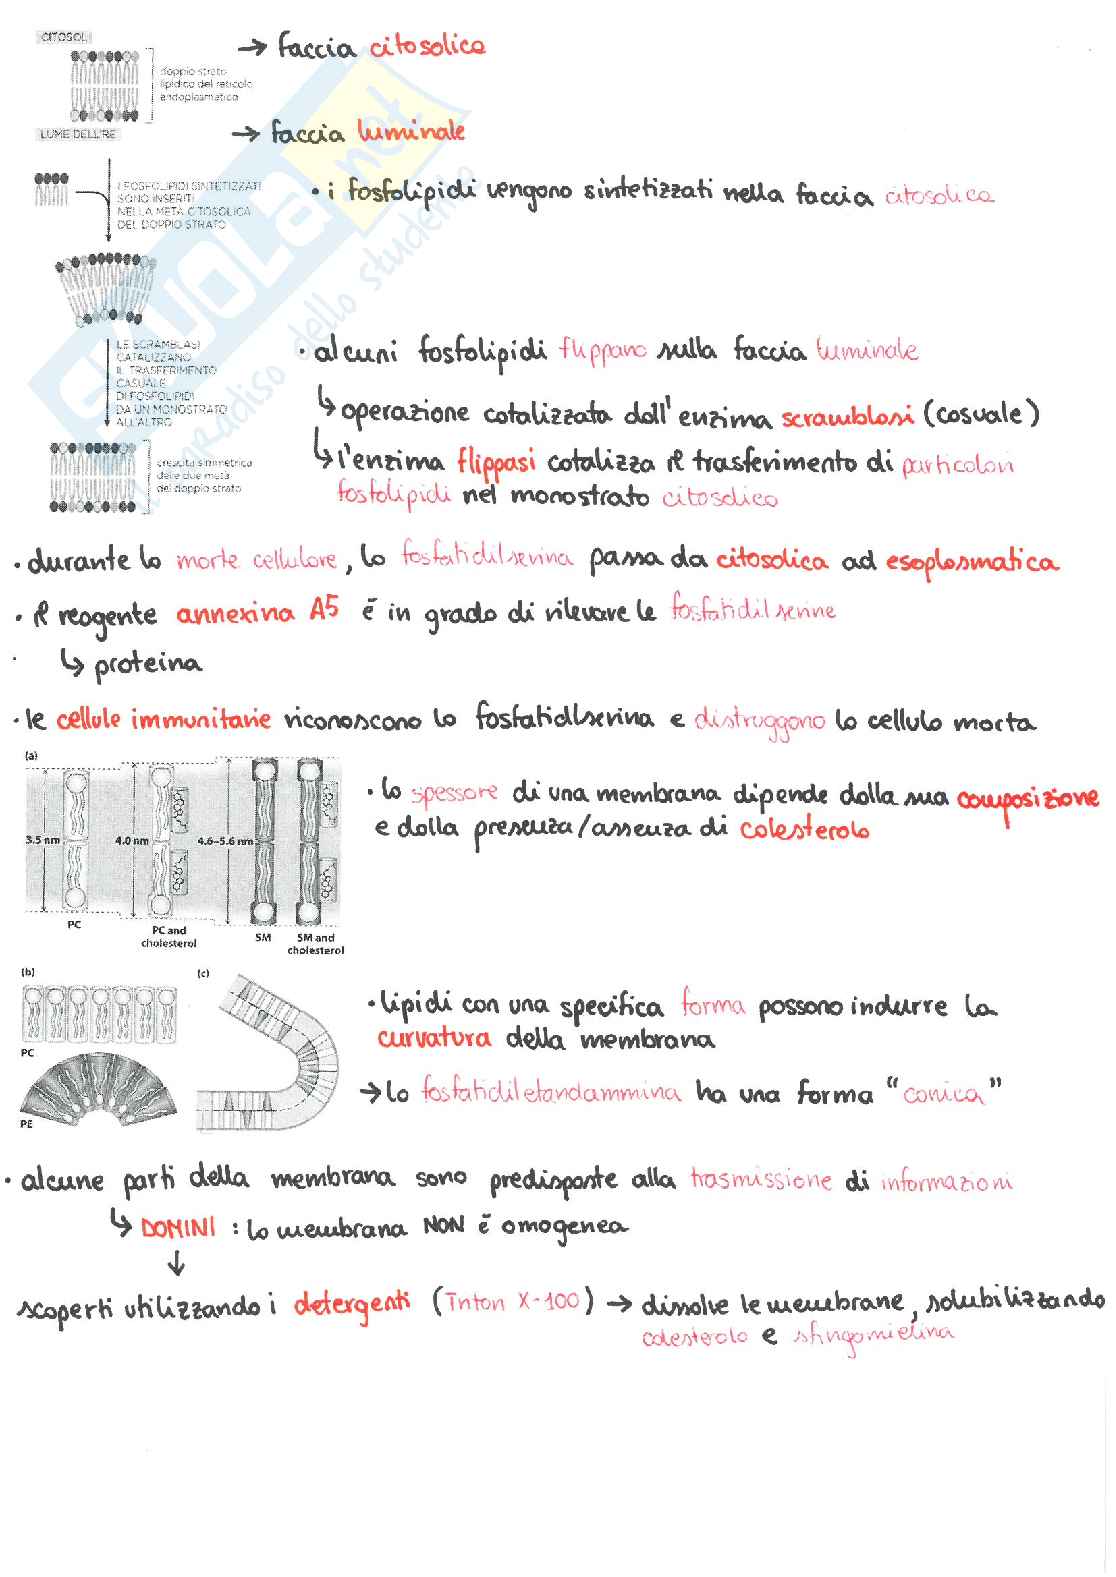 CITOSOL
→ faccia citosolica
doppio strato
lipidico del reticolo
endoplasmatico
LUME DELL'RE
→ faccia luminale
I FOSFOLIPIDI SINTETIZZATI
SONO INSERITI
NELLA METÀ CITOSOLICA
DEL DOPPIO STRATO
• i fosfolipidi vengono sintetizzati nella faccia citosolica
LE SCRAMBLASI
CATALIZZANO
IL TRASFERIMENTO
CASUALE
DI FOSFOLIPIDI
DA UN MONOSTRATO
ALL'ALTRO
• alcuni fosfolipidi flippano sulla faccia luminale
↳ operazione catalizzata dall'enzima scramblasi (casuale)
↳ l'enzima flippasi catalizza il trasferimento di particolari
fosfolipidi nel monostrato citosolico
crescita simmetrica
delle due metà
del doppio strato
• durante la morte cellulare, la fosfatidilserina passa da citosolica ad esoplasmatica
• il reagente annexina A5 è in grado di rilevare le fosfatidilserine
↳ proteina
• le cellule immunitarie riconoscono la fosfatidilserina e distruggono la cellula morta
(a)
3.5 nm
4.0 nm
4.6–5.6 nm
PC
PC and
cholesterol
SM
SM and
cholesterol
• lo spessore di una membrana dipende dalla sua composizione
e dalla presenza/assenza di colesterolo
(b)
(c)
PC
PE
• lipidi con una specifica forma possono indurre la
curvatura della membrana
→ la fosfatidiletanolammina ha una forma "conica"
• alcune parti della membrana sono predisposte alla trasmissione di informazioni
↳ DOMINI : la membrana NON è omogenea
↓
scoperti utilizzando i detergenti (Triton X-100) → dissolve le membrane, solubilizzando
colesterolo e sfingomielina
SKUOLA.net
il paradiso dello studente